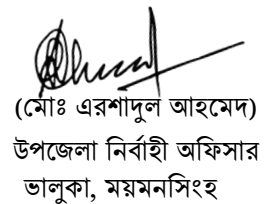 (মোঃ এরশাদুল আহমেদ)
উপজেলা নির্বাহী অফিসার
ভালুকা, ময়মনসিংহ